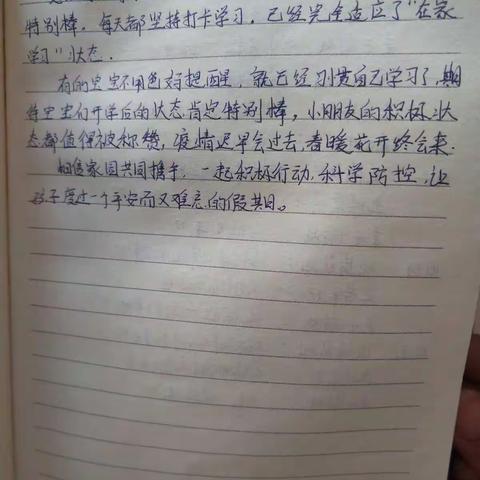 特别棒，每天都坚持打卡学习，已经完全适应了"在家
学习"状态．
有的宝宝不用爸妈提醒，就已经习惯自己学习了，期
待宝宝们开学后的状态肯定特别棒，小朋友的积极状
态都值得被称赞，疫情迟早会过去，春暖花开终会来．
相信家园共同携手，一起积极行动，科学防控，让
孩子度过一个平安而又难忘的假期。